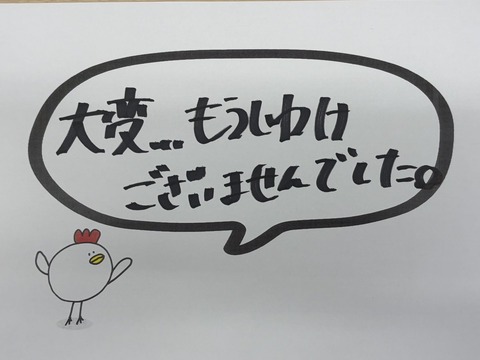 大変...もうしわけ
ございませんでした。